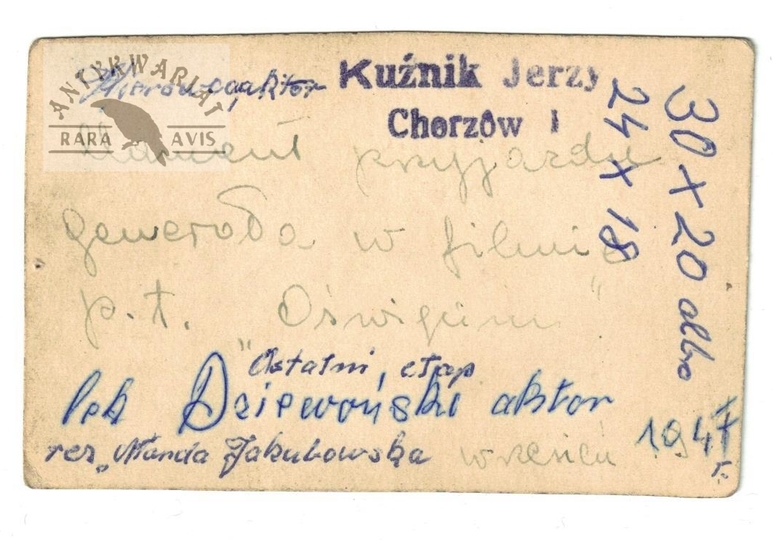 ANTYKWARIAT
RARA AVIS
aktor
Kuźnik Jerzy
Chorzów I
24 x 18
30 x 20 albo
Moment przyjazdu
generała w filmie
p.t. Oświęcim"
"Ostatni etap
Dziewoński aktor
reż. Wanda Jakubowska
wrzesień 1947 r.